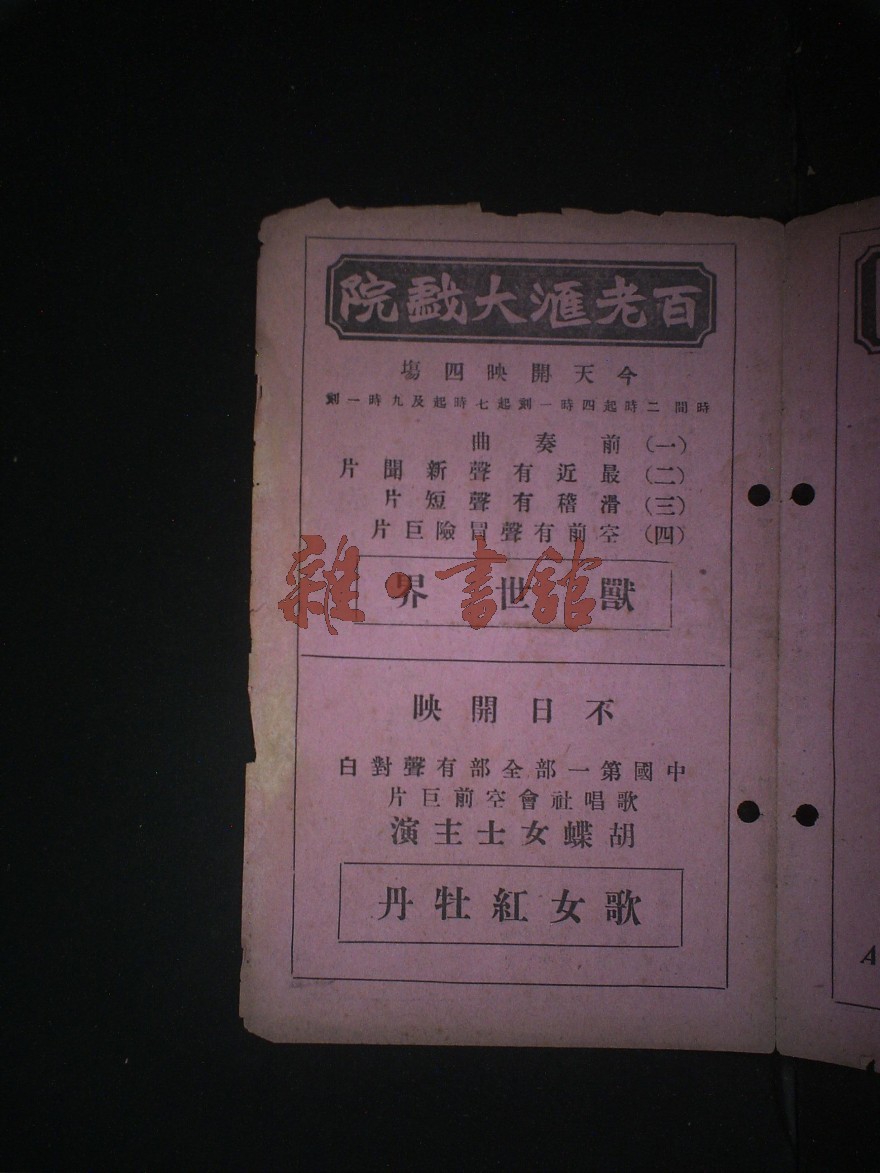 百老滙大戲院
今天開映四塲
時間二時起四時一刻起七時起及九時一刻
(一)前奏曲
(二)最近有聲新聞片
(三)滑稽有聲短片
(四)空前有聲冒險巨片
獸世界
雜·書館
不日開映
中國第一部全部有聲對白
歌唱社會空前巨片
胡蝶女士主演
歌女紅牡丹
A